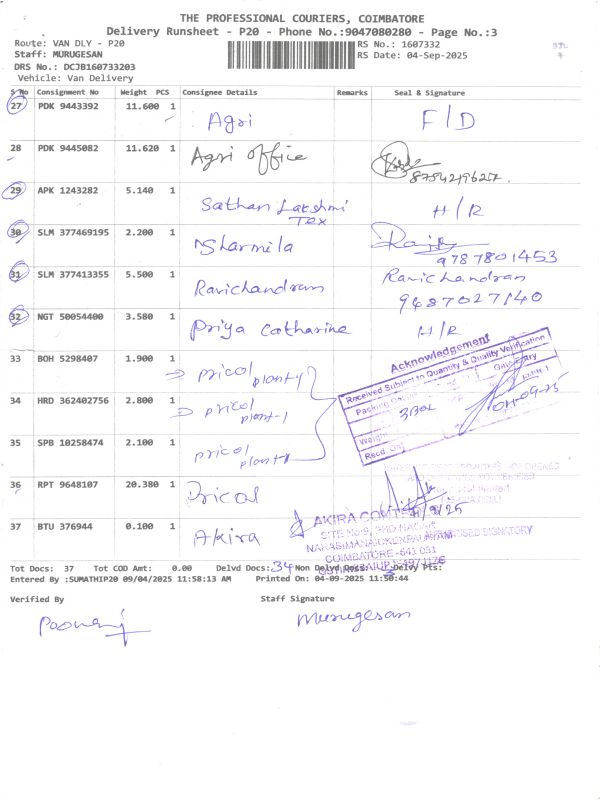 THE PROFESSIONAL COURIERS, COIMBATORE
Delivery Runsheet - P20 - Phone No.:9047080280 - Page No.:3
Route: VAN DLY - P20 RS No.: 1607332
Staff: MURUGESAN RS Date: 04-Sep-2025
DRS No.: DCJB160733203
Vehicle: Van Delivery
S No Consignment No Weight PCS Consignee Details Remarks Seal & Signature
27 PDK 9443392 11.600 1 Agri F/D
28 PDK 9445082 11.620 1 Agri office
8754219627.
29 APK 1243282 5.140 1 Sathan Lakshmi Tex H/R
30 SLM 377469195 2.200 1 Sharmila
9787801453
31 SLM 377413355 5.500 1 Ravichandran Ravichandran
9487027140
32 NGT 50054400 3.580 1 Priya Catharine H/R
33 BOH 5298407 1.900 1 pricol plant-1
34 HRD 362402756 2.800 1 pricol plant-1
35 SPB 10258474 2.100 1 pricol plant-1
Acknowledgement
Received Subject to Quantity & Quality Verification
3 Box
04-09-25
36 RPT 9648107 20.380 1 Pricol
37 BTU 376944 0.100 1 Akira
4/9/25
AKIRA
COIMBATORE-641 031
Tot Docs: 37 Tot COD Amt: 0.00 Delvd Docs: 34 Non Delvd Docs: 3 Delvy Pts:
Entered By :SUMATHIP20 09/04/2025 11:58:13 AM Printed On: 04-09-2025 11:50:44
Verified By Staff Signature
Murugesan